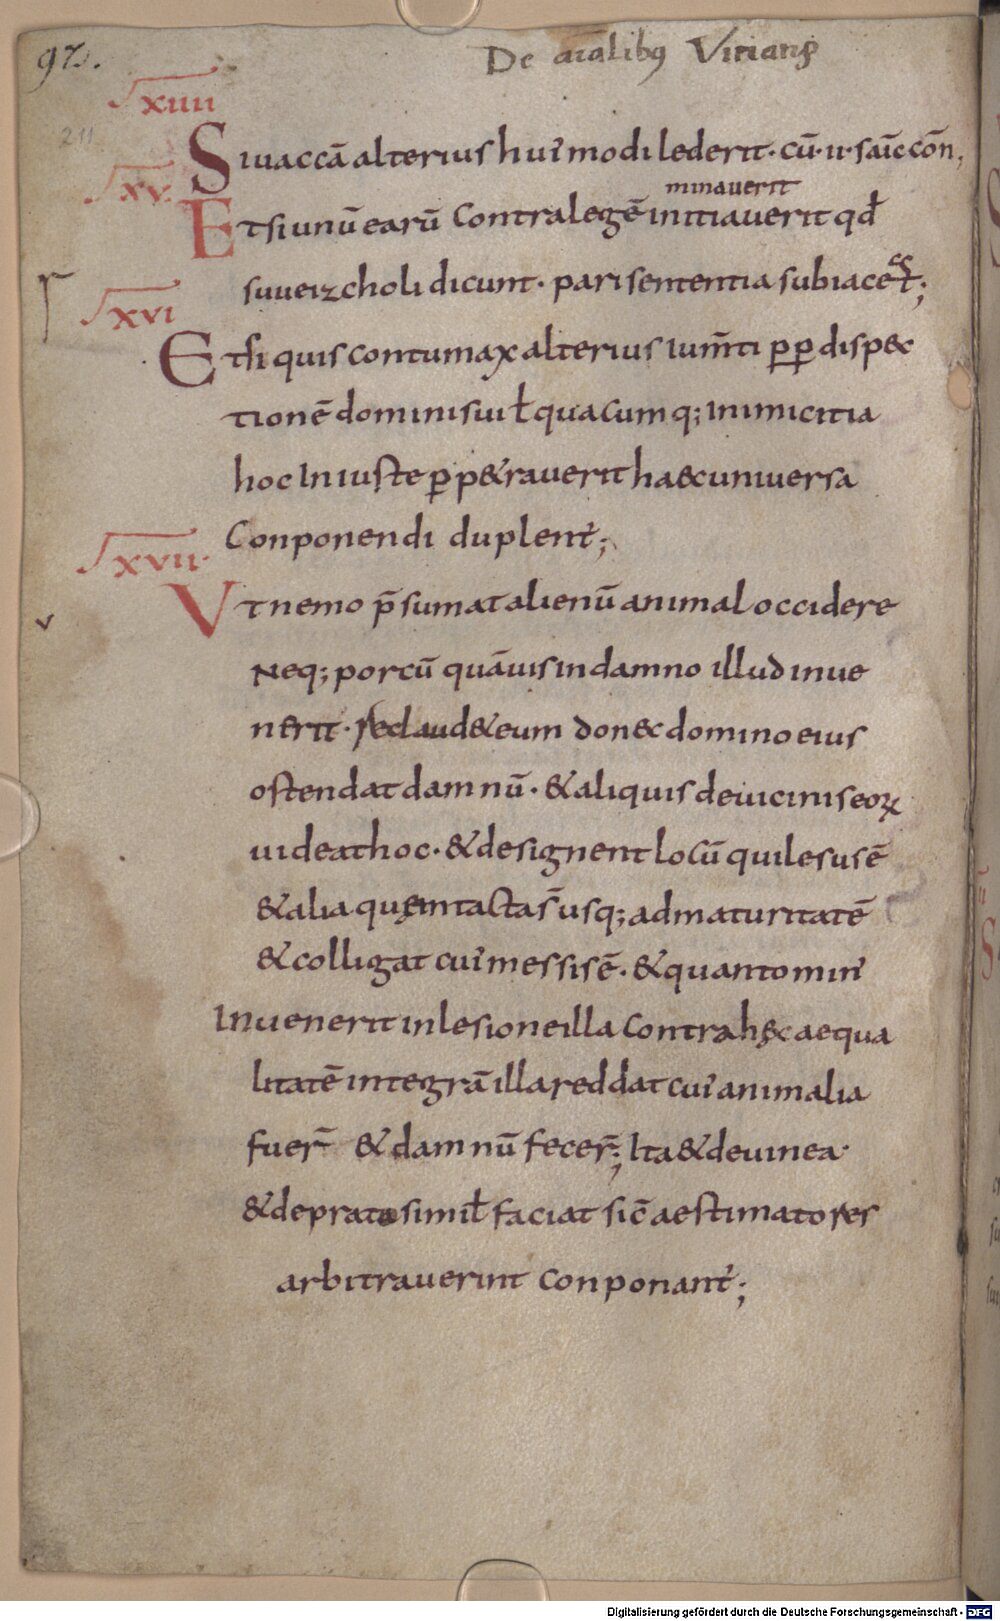 97.
De aialibus Vitiatis
XIIII
211
Si uaccā alterius huꝰmodi lederit · cū · ii · saic con̄,
XV.
minauerit
Et si unū earū contra legē initiauerit qđ
suueizcholi dicunt · pari sententia subiacet;
XVI
Et si quis contumax alterius ium̄ti ꝑꝑ dispec
tionē domini sui ł quacumq; inimicitia
hoc iniuste ꝑp&rauerit haec uniuersa
conponendi duplent;
XVII.
Ut nemo p̄sumat alienū animal occidere
Neq; porcū quāuis in damno illud inue
nerit · reclaud& eum donec domino eius
ostendat damnū · & aliquis de uicinis eoꝝ
uideat hoc · & designent locū qui lesus ē
& alia quę intacta s̄ usq; ad maturitatē
& colligat cuiꝰ messis ē · & quanto minꝰ
Inuenerit in lesione illa contra hęc aequa
litatē integrā illa reddat cuiꝰ animalia
fuer̄ & damnū fecer̄; Ita & de uinea
& de prato simił faciat sic̄ aestimatores
arbitrauerint conponant;
Digitalisierung gefördert durch die Deutsche Forschungsgemeinschaft - DFG